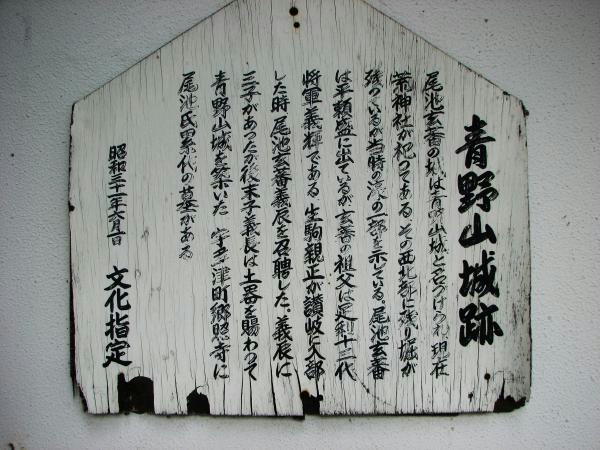 青野山城跡
尾池玄蕃の城は青野山城と名づけられ、現在
荒神社が祀ってある。その西北部に残り堀が
残っているが当時の濠の一部を示している。尾池玄蕃
は平頼盛に出ているが玄蕃の祖父は足利十三代
将軍義輝である。生駒親正が讃岐に入部
した時尾池玄蕃義辰を召聘した。義辰に
三子があったが後末子義長は土器を賜わって
青野山城を築いた 宇多津町郷照寺に
尾池氏累代の墓がある
昭和三十一年六月一日 文化指定